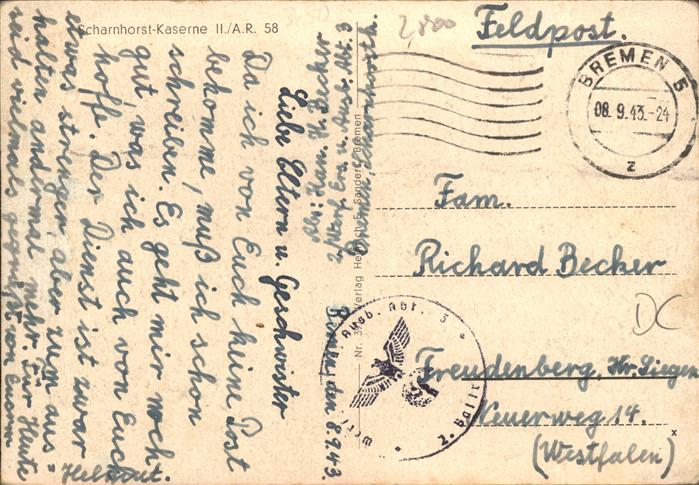 Scharnhorst-Kaserne II./A.R. 58
2,800
Feldpost.
BREMEN 5
08.9.43.-24
z
Fam.
Richard Becker
Freudenberg, Kr. Siegen
Neuerweg 14.
(Westfalen)
DC
Nr. 3 Verlag Heinrich E. Sander, Bremen
Ausb. Abt. 3
Bremen, den 8.9.43.
Liebe Eltern u. Geschwister
Da ich von Euch keine Post
bekomme, muß ich schon
schreiben. Es geht mir noch
gut, was ich auch von Euch
hoffe. Der Dienst ist zwar
etwas strenger, aber zum aus=
halten andermal mehr. Für Heute
seid vielmals gegrüßt von Eurem
Helmut.